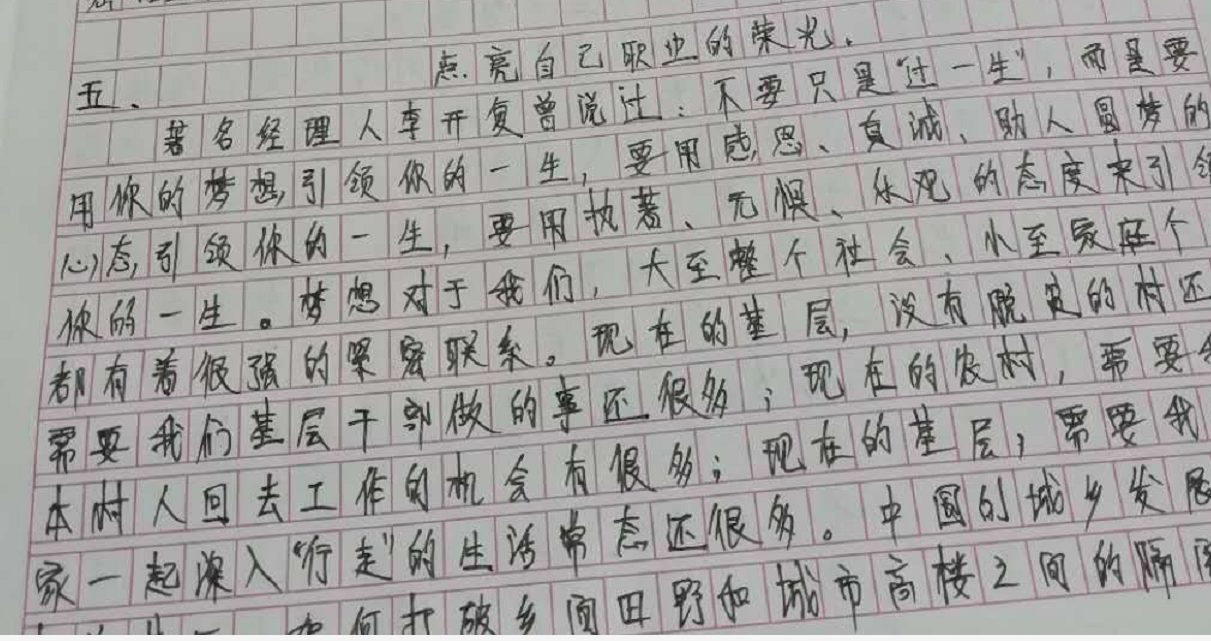 五、 点亮自己职业的荣光.
著名经理人李开复曾说过:不要只是“过一生”,而是要
用你的梦想引领你的一生,要用感恩、真诚、助人圆梦的
心态引领你的一生,要用执著、无惧、乐观的态度来引领
你的一生。梦想对于我们,大至整个社会、小至家庭个
都有着很强的紧密联系。现在的基层,没有脱贫的村还
需要我们基层干部做的事还很多;现在的农村,需要
本村人回去工作的机会有很多;现在的基层,需要我
家一起深入“行走”的生活常态还很多。中国的城乡发展
如何打破乡间田野和城市高楼之间的隔